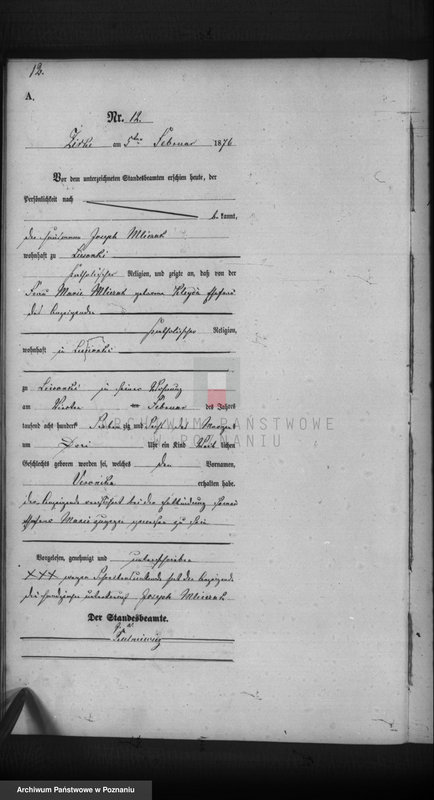 12.
A.
Nr. 12.
Zirke am 5ten Februar 1876
Vor dem unterzeichneten Standesbeamten erschien heute, der
Persönlichkeit nach
bekannt,
der Joseph Mlicrak
wohnhaft zu
katholischer Religion, und zeigte an, daß von der
Frau Marie Mlicrak geborene Ehefrau
des Anzeigenden
katholischer Religion,
wohnhaft in
zu in seiner Wohnung
am vierten Februar des Jahres
tausend acht hundert siebenzig und sechs des Morgens
um drei Uhr ein Kind weiblichen
Geschlechts geboren worden sei, welches den Vornamen
Veronika erhalten habe.
der Anzeigende versichert bei der Entbindung seiner
Ehefrau Marie zugegen gewesen zu sein
Vorgelesen, genehmigt und unterschrieben
XXX wegen Schreibensunkunde hat der Anzeigende
die Handzeichen unterkreuzt Joseph Mlicrak
Der Standesbeamte.
ARCHIWUM PAŃSTWOWE
W POZNANIU
Archiwum Państwowe w Poznaniu